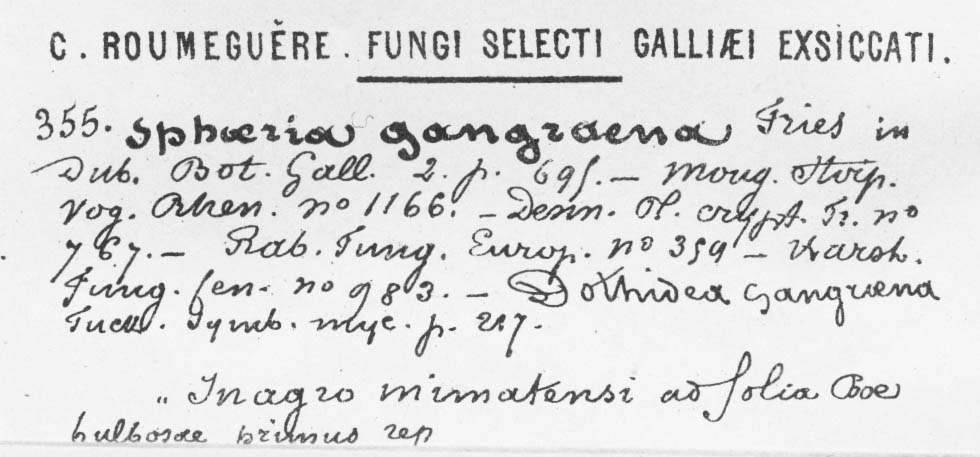 C. ROUMEGUĚRE. FUNGI SELECTI GALLIÆI EXSICCATI.
355. Sphæria gangræna Fries in
Dub. Bot. Gall. 2. p. 695. — Moug. Stirp.
Vog. Rhen. no 1166. — Desm. Pl. crypt. Fr. no
767. — Rab. Fung. Europ. no 359 — Karsh.
Fung. fen. no 983. — Dothidea gangræna
Fuck. Symb. myc. p. 217.
„ In agro mimatensi ad folia Poæ
bulbosae primus rep